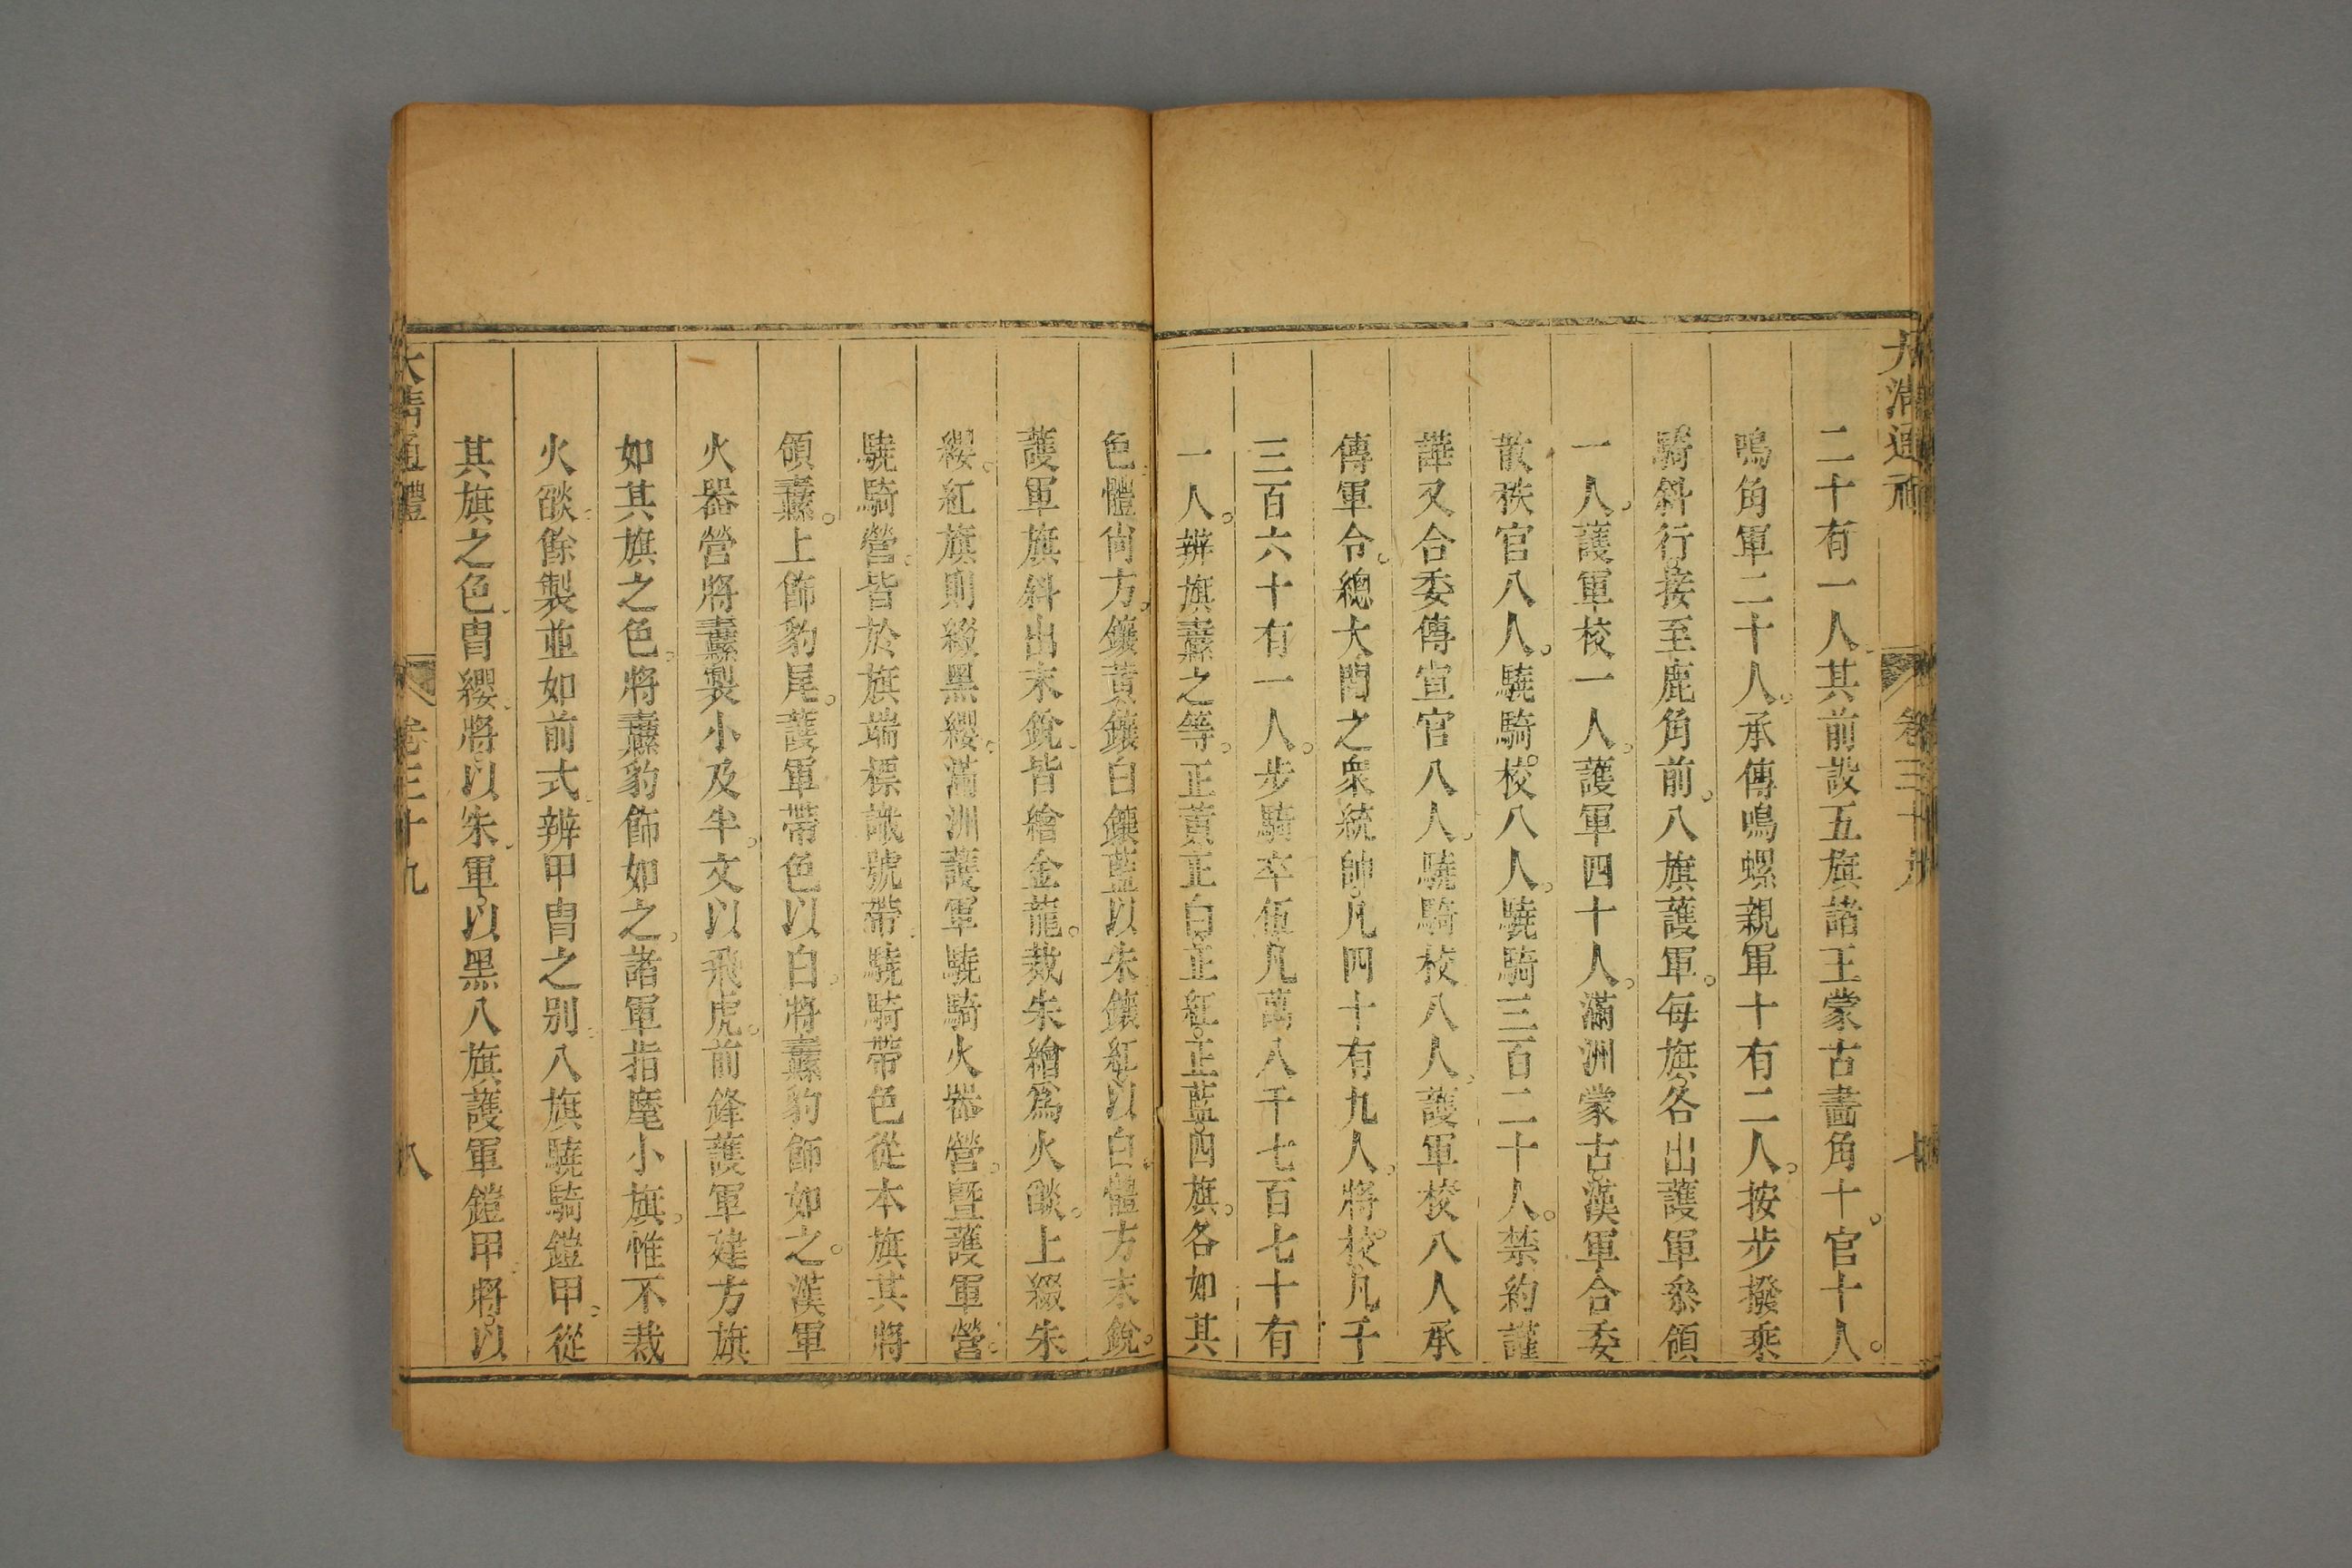 大清通禮 卷三十九 七
二十有一人其前設五旗諸王蒙古畫角十。官十人。
鳴角軍二十人。承傳鳴螺親軍十有二人。按步撥乘
騎斜行。接至鹿角前。八旗護軍。每旗各出護軍叅領
一人。護軍校一人。護軍四十人。滿洲蒙古漢軍合委
散秩官八人。驍騎校八人。驍騎三百二十人。禁約謹
譁又合委傳宣官八人。驍騎校八人。護軍校八人承
傳軍令。總大閱之衆統帥。凡四十有九人。將校。凡千
三百六十有一人。步騎卒伍凡萬八千七百七十有
一人。辨旗纛之等。正黃正白正紅。正藍。四旗。各如其
色。體尙方。鑲黃鑲白鑲藍以朱鑲紅以白。體方末銳。
護軍旗斜出末銳。皆繪金龍。裁朱繒爲火燄。上綴朱
纓。紅旗則綴黑纓。滿洲護軍驍騎火器營。曁護軍營。
驍騎營。皆於旗端標識號帶。驍騎帶色從本旗其將
領纛。上飾豹尾。護軍帶色以白。將纛豹飾如之。漢軍
火器營將纛製小及半。文以飛虎。前鋒護軍建方旗
如其旗之色。將纛豹飾如之。諸軍指麾小旗。惟不裁
火燄。餘製並如前式。辨甲冑之別。八旗驍騎鎧甲。從
其旗之色。冑纓。將以朱。軍以黑八旗護軍鎧甲。將。以
大清通禮 卷三十九 八